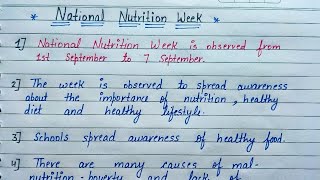 * National Nutrition Week *
1] National Nutrition Week is observed from
1st September to 7 September.
2] The week is observed to spread awareness
about the importance of nutrition, healthy
diet and healthy lifestyle.
3] Schools spread awareness of healthy food.
4] There are many causes of mal-
nutrition - poverty and lack of